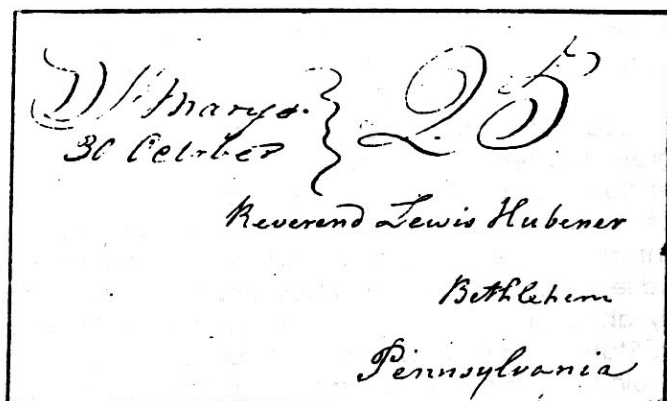 St Marys. } 25
30 October
Reverend Lewis Hubener
Bethlehem
Pennsylvania